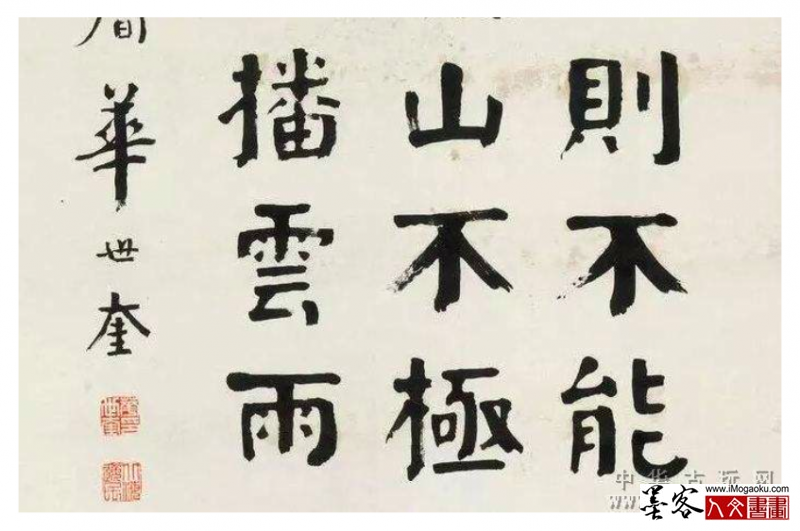 則不能
山不極
播雲雨
華世奎
中华古玩网
墨客 人文書畫
www.iMogaoku.com